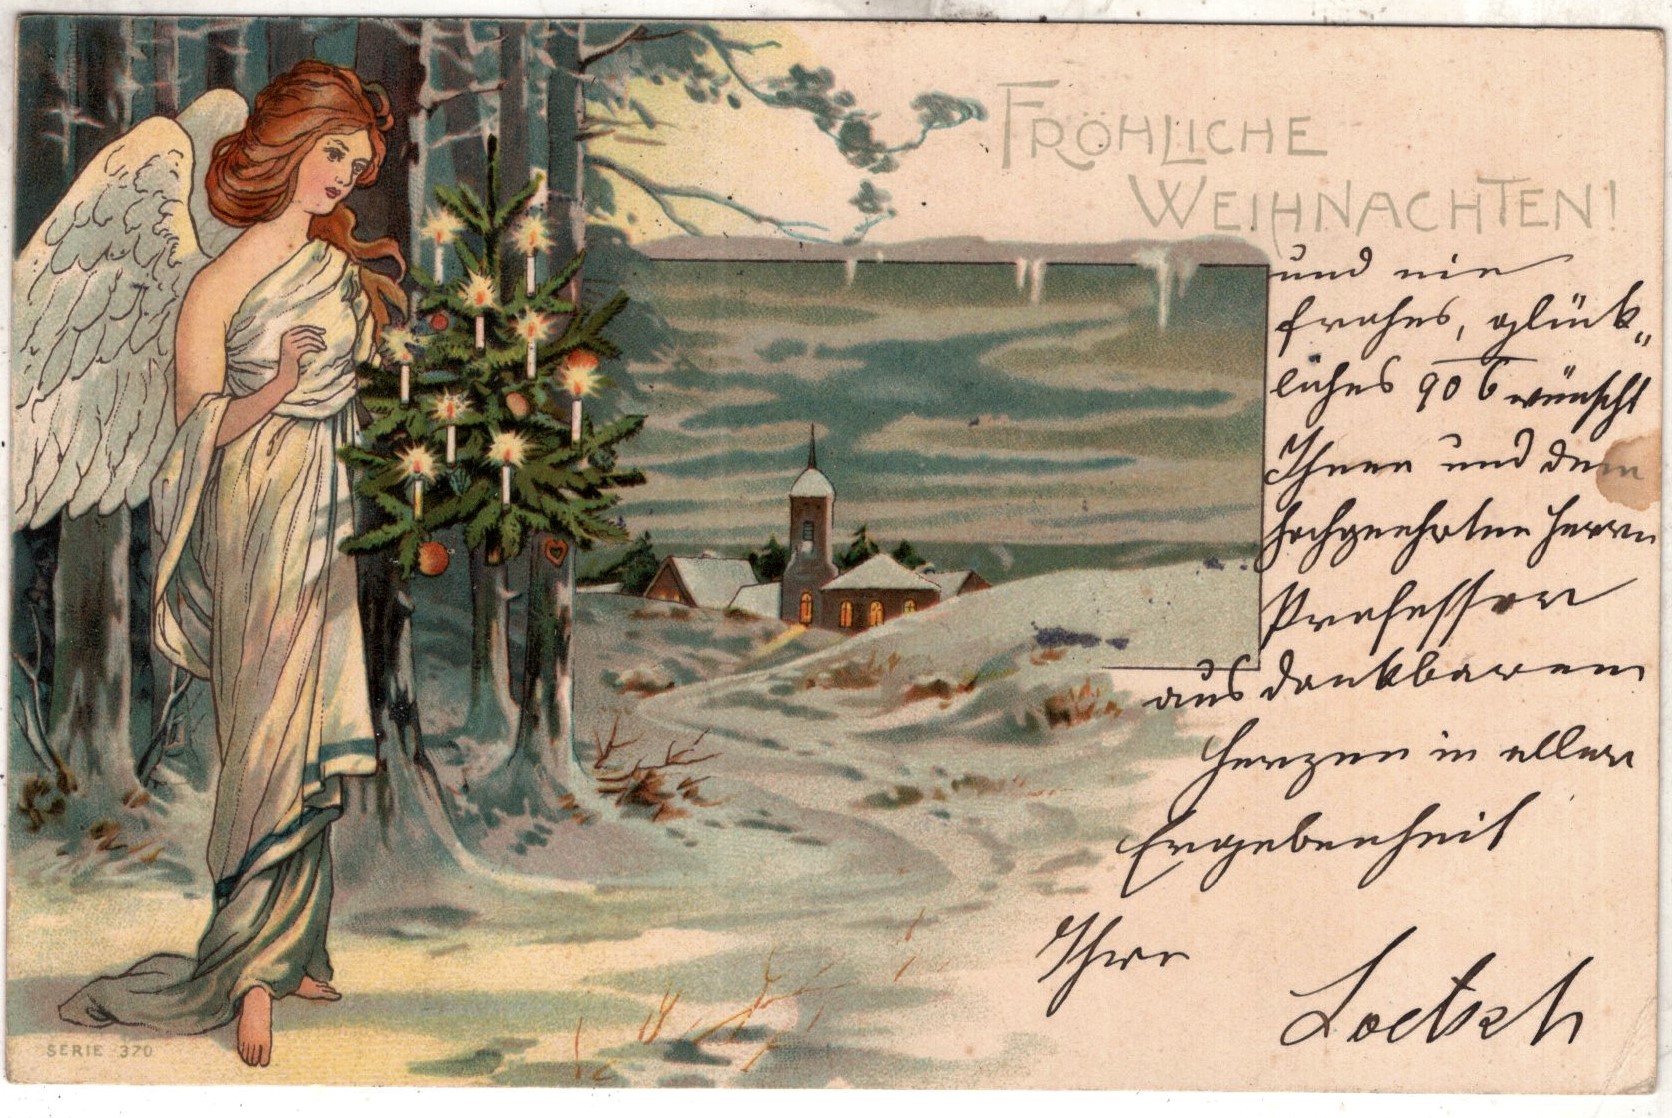 FRÖHLICHE
WEIHNACHTEN!
und ein
frohes, glück„
liches 906 wünscht
Ihnen und dem
hochgeehrten Herrn
Professor
aus dankbarem
Herzen in aller
Ergebenheit
Ihre
SERIE 370